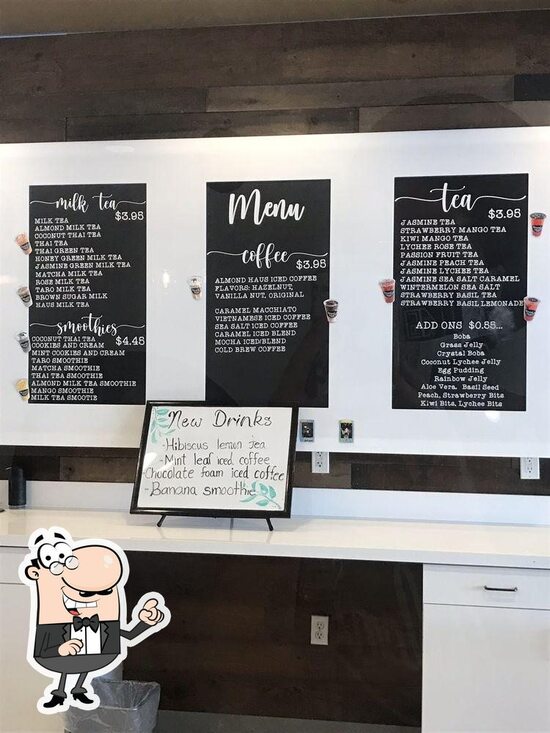 milk tea
$3.95
MILK TEA
ALMOND MILK TEA
COCONUT THAI TEA
THAI TEA
THAI GREEN TEA
HONEY GREEN MILK TEA
JASMINE GREEN MILK TEA
MATCHA MILK TEA
ROSE MILK TEA
TARO MILK TEA
BROWN SUGAR MILK
HAUS MILK TEA
smoothies
$4.45
COCONUT THAI TEA
COOKIES AND CREAM
MINT COOKIES AND CREAM
TARO SMOOTHIE
MATCHA SMOOTHIE
THAI TEA SMOOTHIE
ALMOND MILK TEA SMOOTHIE
MANGO SMOOTHIE
MILK TEA SMOOTIE
Menu
coffee
$3.95
ALMOND HAUS ICED COFFEE
FLAVORS: HAZELNUT,
VANILLA NUT, ORIGINAL
CARAMEL MACCHIATO
VIETNAMESE ICED COFFEE
SEA SALT ICED COFFEE
CARAMEL ICED BLEND
MOCHA ICED/BLEND
COLD BREW COFFEE
tea
$3.95
JASMINE TEA
STRAWBERRY MANGO TEA
KIWI MANGO TEA
LYCHEE ROSE TEA
PASSION FRUIT TEA
JASMINE PEACH TEA
JASMINE LYCHEE TEA
JASMINE SEA SALT CARAMEL
WINTERMELON SEA SALT
STRAWBERRY BASIL TEA
STRAWBERRY BASIL LEMONADE
ADD ONS $0.55...
Boba
Grass Jelly
Crystal Boba
Coconut Lychee Jelly
Egg Pudding
Rainbow Jelly
Aloe Vera, Basil Seed
Peach, Strawberry Bits
Kiwi Bits, Lychee Bits
New Drinks
-Hibiscus lemon tea
-Mint leaf iced coffee
-Chocolate foam iced coffee
-Banana smoothie